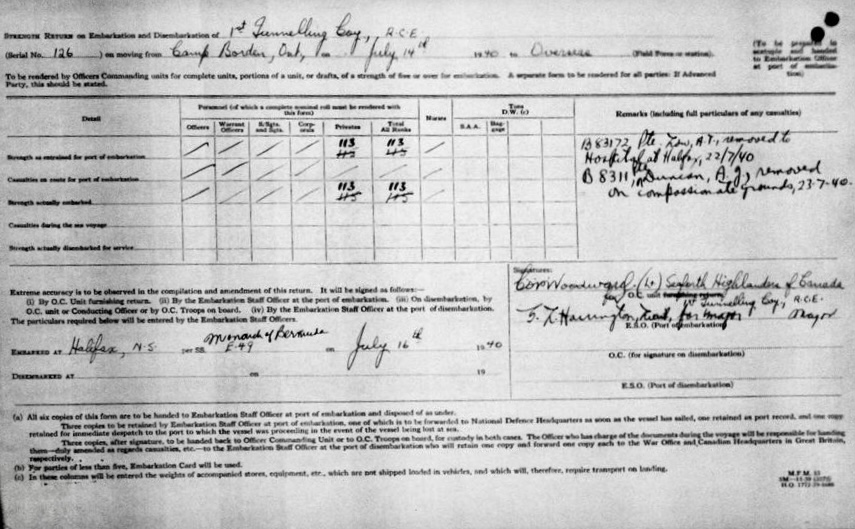 STRENGTH RETURN on Embarkation and Disembarkation of 1st Tunnelling Coy., R.C.E.
(Serial No. 126) on moving from Camp Borden, Ont, on July 14th 1940 to Overseas (Field Force or station).
(To be prepared in sextuple and handed to Embarkation Officer at port of embarkation)
To be rendered by Officers Commanding units for complete units, portions of a unit, or drafts, of a strength of five or over for embarkation. A separate form to be rendered for all parties: If Advanced
Party, this should be stated.
Detail
Personnel (of which a complete nominal roll must be rendered with this form)
Officers
Warrant Officers
S/Sgts. and Sgts.
Corporals
Privates
Total All Ranks
Nurses
Tons D.W. (c)
S.A.A.
Baggage
Remarks (including full particulars of any casualties)
Strength as entrained for port of embarkation 113 115 113 115
Casualties en route for port of embarkation
Strength actually embarked 113 115 113 115
Casualties during the sea voyage
Strength actually disembarked for service
B 83172 Pte. Low, A.T., removed to
Hospital at Halifax, 22/7/40
B 8311 Pte Duncan, A.J., removed
on compassionate grounds, 23-7-40.
Extreme accuracy is to be observed in the compilation and amendment of this return. It will be signed as follows:—
(i) By O.C. Unit furnishing return. (ii) By the Embarkation Staff Officer at the port of embarkation. (iii) On disembarkation, by
O.C. unit or Conducting Officer or by O.C. Troops on board. (iv) By the Embarkation Staff Officer at the port of disembarkation.
The particulars required below will be entered by the Embarkation Staff Officers.
EMBARKED AT Halifax, N.S. per SS. Monarch of Bermuda E-49 on July 16th 1940
DISEMBARKED AT on 19
Signatures:
Woodward (Lt) Seaforth Highlanders of Canada
for O.C. unit furnishing return 1st Tunnelling Coy, R.C.E.
Harrington, Lieut, for Major Major
E.S.O. (Port of embarkation)
O.C. (for signature on disembarkation)
E.S.O. (Port of disembarkation)
(a) All six copies of this form are to be handed to Embarkation Staff Officer at port of embarkation and disposed of as under.
Three copies to be retained by Embarkation Staff Officer at port of embarkation, one of which is to be forwarded to National Defence Headquarters as soon as the vessel has sailed, one retained as port record, and one copy
retained for immediate despatch to the port to which the vessel was proceeding in the event of the vessel being lost at sea.
Three copies, after signature, to be handed back to Officer Commanding Unit or to O.C. Troops on board, for custody in both cases. The Officer who has charge of the documents during the voyage will be responsible for handing
them—duly amended as regards casualties, etc.—to the Embarkation Staff Officer at the port of disembarkation who will retain one copy and forward one copy each to the War Office and Canadian Headquarters in Great Britain,
respectively.
(b) For parties of less than five, Embarkation Card will be used.
(c) In these columns will be entered the weights of accompanied stores, equipment, etc., which are not shipped loaded in vehicles, and which will, therefore, require transport on landing.
M.F.M. 53